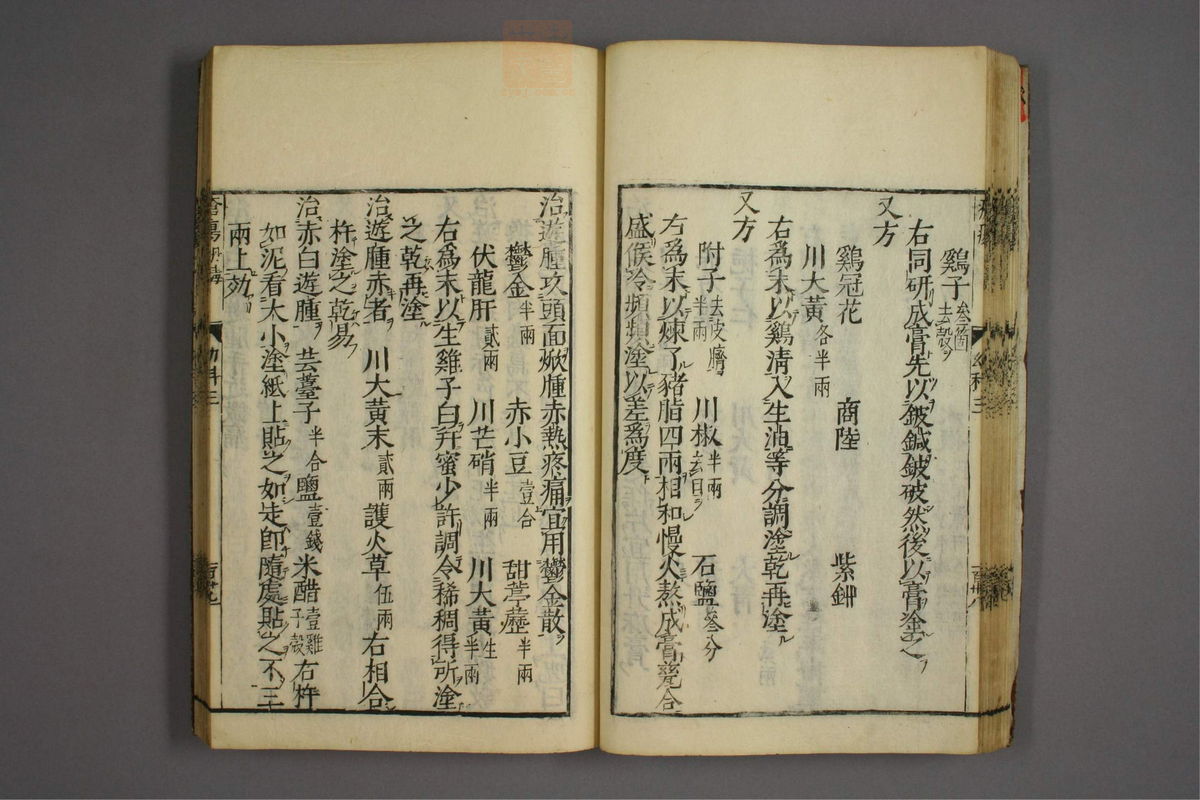 鷄子叁箇去殼
右同研成膏先以鈹鍼鈹破然後以膏塗之
又方
鷄冠花 商陸 紫鉚
川大黃各半兩
右爲末以鷄清入生油等分調塗乾再塗
又方
附子半兩去皮臍 川椒半兩去目 石鹽叁分
右爲末以煉了豬脂四兩相和慢火熬成膏甆合
盛候冷頻頻塗以差爲度
治遊腫攻頭面焮腫赤熱疼痛宜用鬱金散
鬱金半兩 赤小豆壹合 甜葶藶半兩
伏龍肝貳兩 川芒硝半兩 川大黃生半兩
右爲末以生雞子白幷蜜少許調令稀稠得所塗
之乾再塗
治遊腫赤者 川大黃末貳兩 護火草伍兩右相合
杵塗之乾易
治赤白遊腫 芸薹子半合鹽壹錢米醋壹雞子殼右杵
如泥看大小塗紙上貼之如走卽隨處貼之不三
兩上効
幼科三